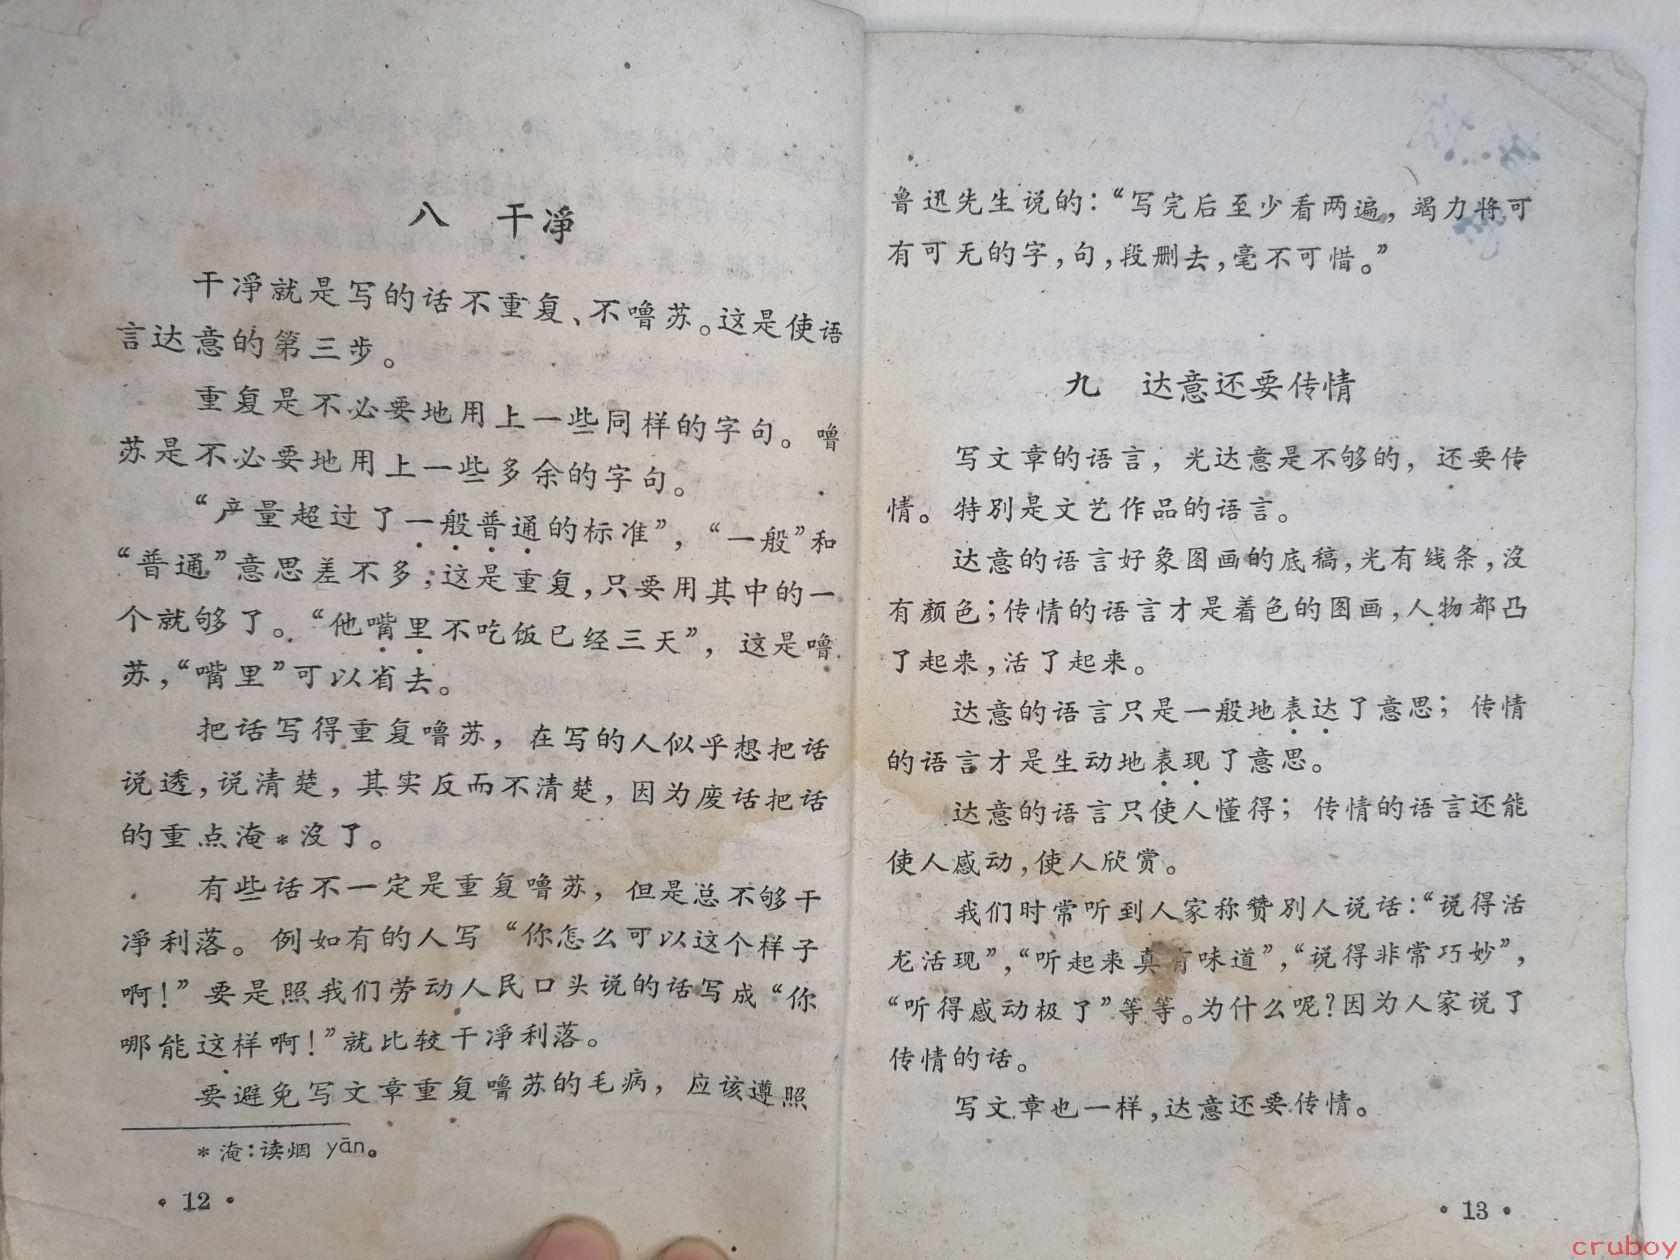 八　干净
干净就是写的话不重复、不噜苏。这是使语
言达意的第三步。
重复是不必要地用上一些同样的字句。噜
苏是不必要地用上一些多余的字句。
“产量超过了一般普通的标准”，“一般”和
“普通”意思差不多；这是重复，只要用其中的一
个就够了。“他嘴里不吃饭已经三天”，这是噜
苏，“嘴里”可以省去。
把话写得重复噜苏，在写的人似乎想把话
说透，说清楚，其实反而不清楚，因为废话把话
的重点淹*沒了。
有些话不一定是重复噜苏，但是总不够干
净利落。例如有的人写“你怎么可以这个样子
啊！”要是照我们劳动人民口头说的话写成“你
哪能这样啊！”就比较干净利落。
要避免写文章重复噜苏的毛病，应该遵照
*淹：读烟 yān。
·12·
鲁迅先生说的：“写完后至少看两遍，竭力将可
有可无的字，句，段删去，毫不可惜。”
九　达意还要传情
写文章的语言，光达意是不够的，还要传
情。特別是文艺作品的语言。
达意的语言好象图画的底稿，光有线条，沒
有颜色；传情的语言才是着色的图画，人物都凸
了起来，活了起来。
达意的语言只是一般地表达了意思；传情
的语言才是生动地表现了意思。
达意的语言只使人懂得；传情的语言还能
使人感动，使人欣赏。
我们时常听到人家称赞別人说话：“说得活
龙活现”，“听起来真有味道”，“说得非常巧妙”，
“听得感动极了”等等。为什么呢？因为人家说了
传情的话。
写文章也一样，达意还要传情。
·13·
cruboy